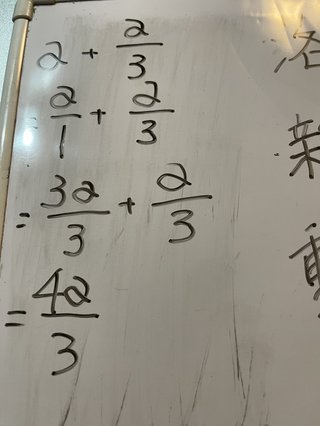 a + a/3
= a/1 + a/3
= 3a/3 + a/3
= 4a/3